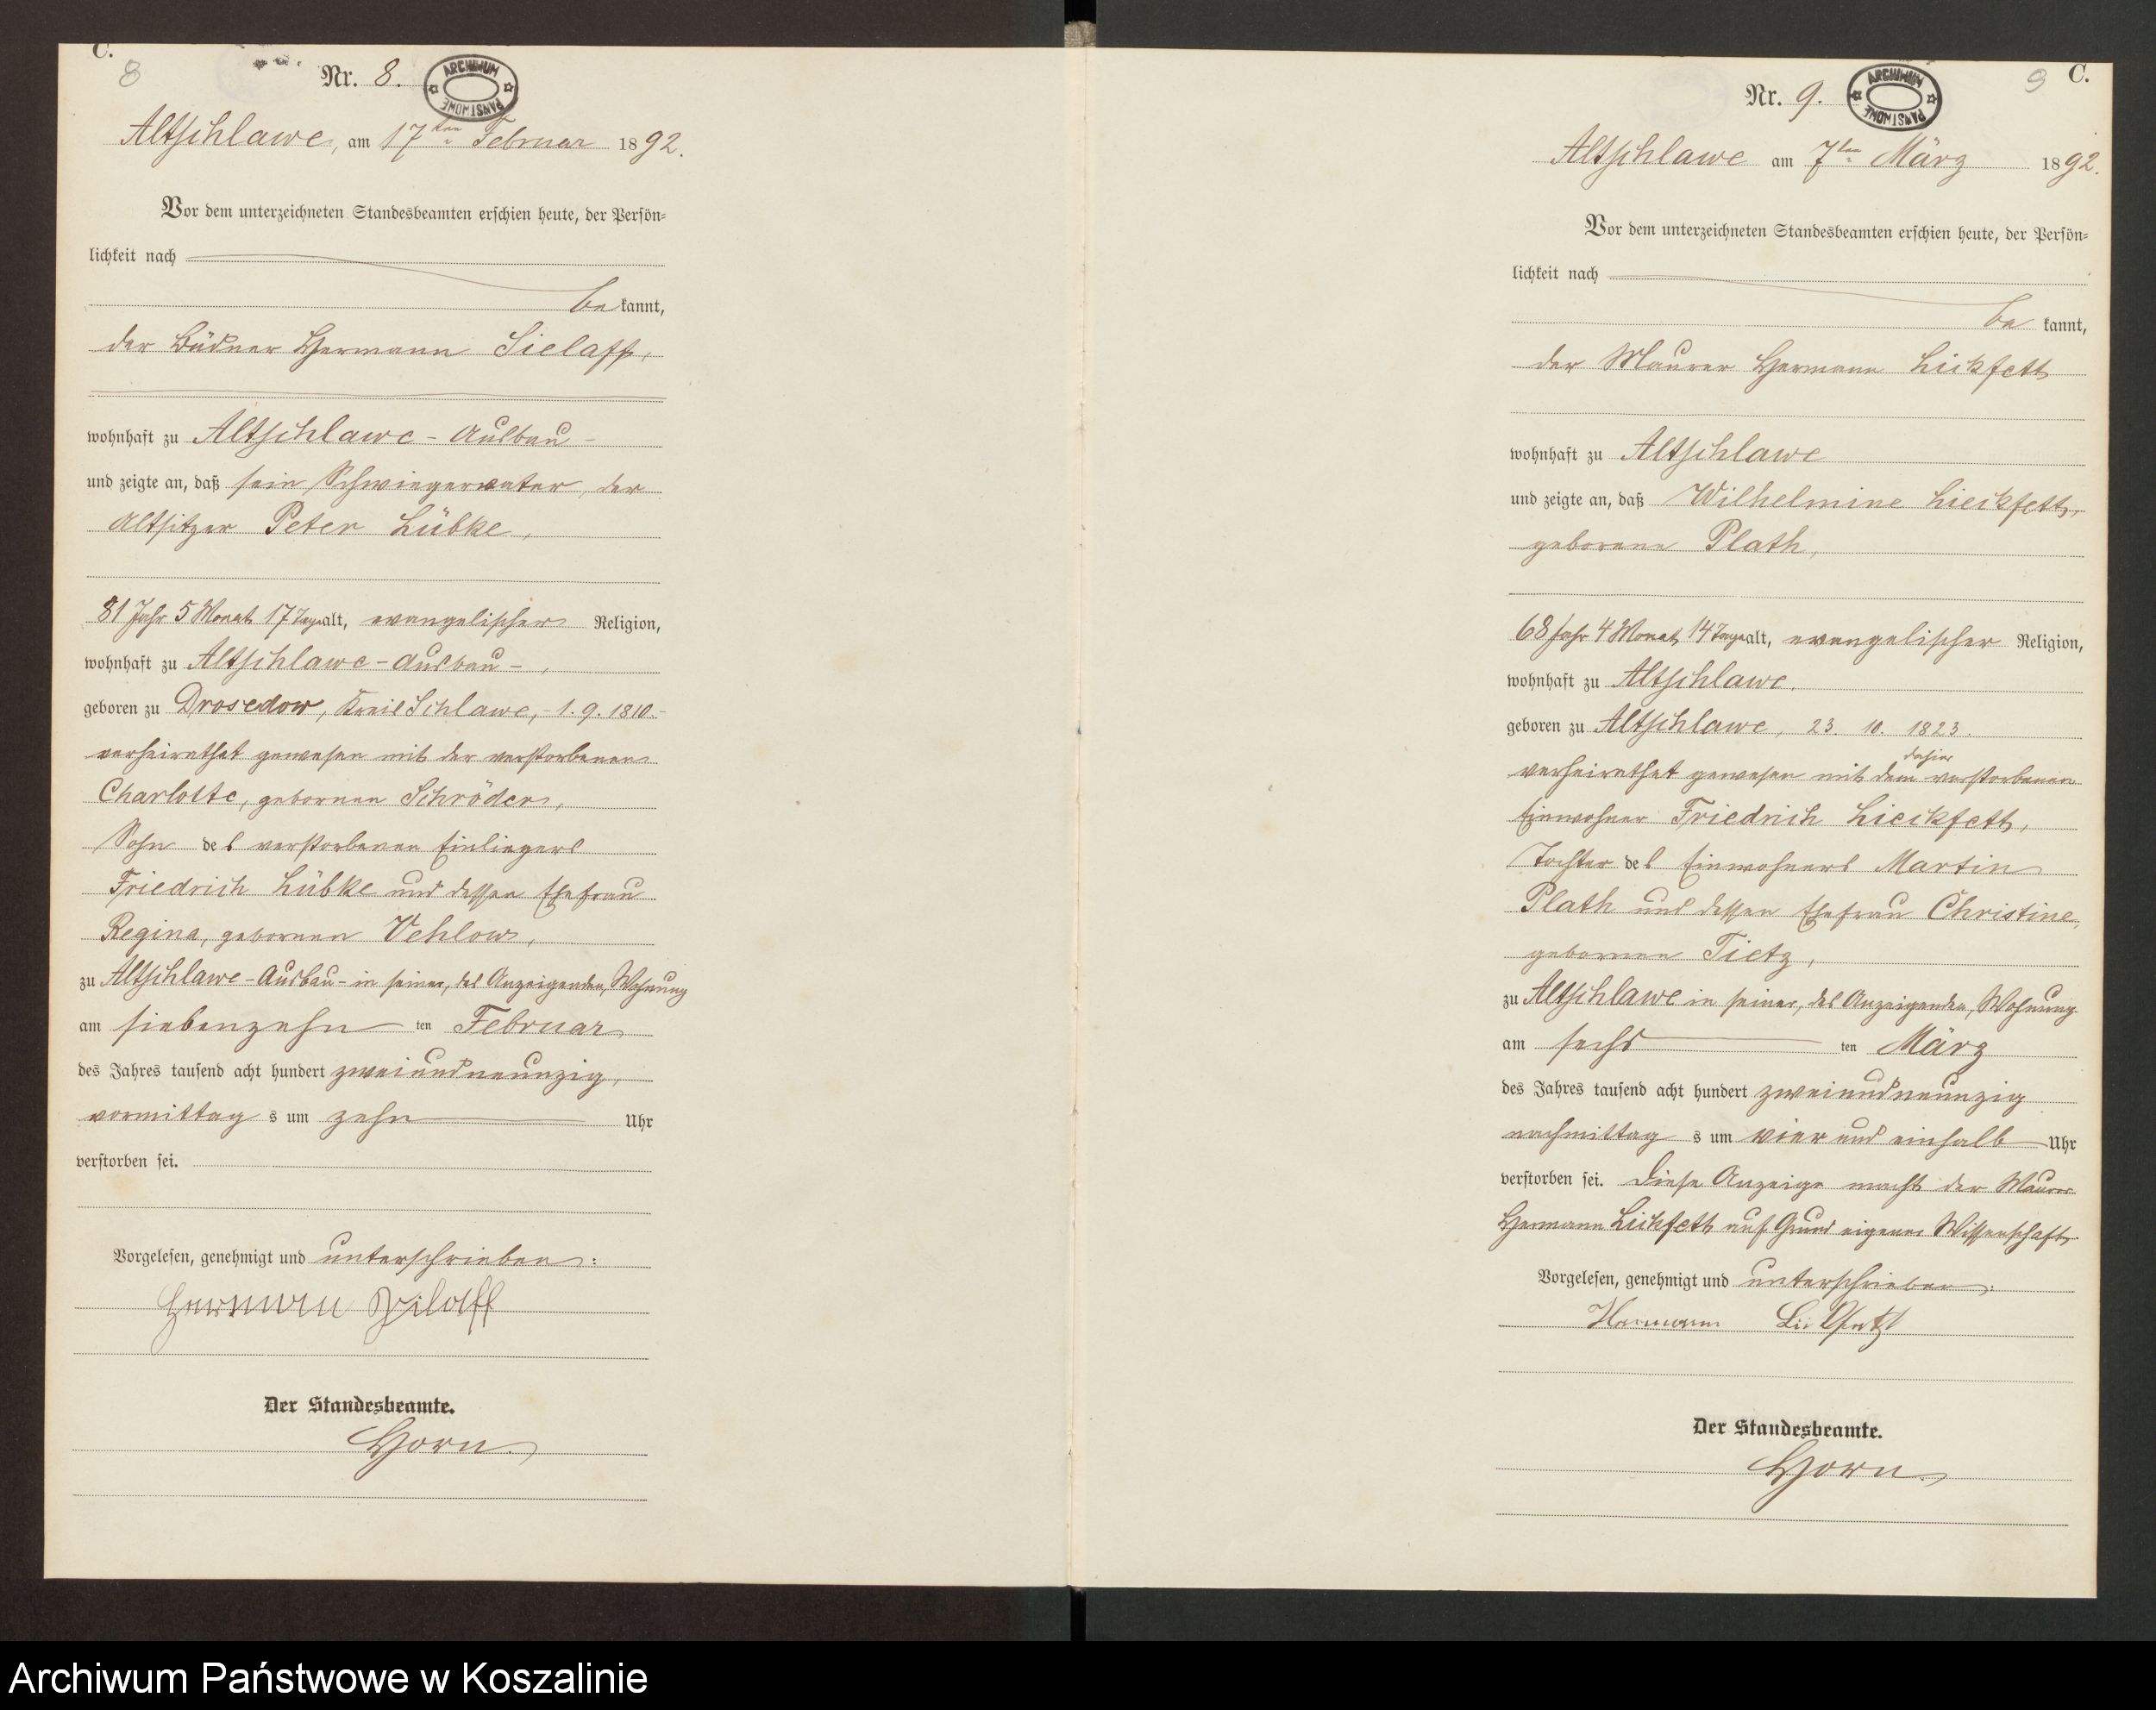 C.
8
Nr. 8.
ARCHIWUM PAŃSTWOWE
Altschlawe, am 17ten Februar 1892.
Vor dem unterzeichneten Standesbeamten erschien heute, der Persön-
lichkeit nach
bekannt,
der Büdner Hermann Sielaff,
wohnhaft zu Altschlawe - Ausbau -
und zeigte an, daß sein Schwiegervater, der
Altsitzer Peter Lübke,
81 Jahr 5 Monat 17 Tage alt, evangelischer Religion,
wohnhaft zu Altschlawe - Ausbau - ,
geboren zu Drosedow, Kreis Schlawe, - 1. 9. 1810. -
verheirathet gewesen mit der verstorbenen
Charlotte, gebornen Schröder,
Sohn des verstorbenen Einliegers
Friedrich Lübke und dessen Ehefrau
Regina, gebornen Vehlow,
zu Altschlawe - Ausbau - in seiner, des Anzeigenden, Wohnung
am siebenzehn ten Februar
des Jahres tausend acht hundert zweiundneunzig,
vormittag s um zehn Uhr
verstorben sei.
Vorgelesen, genehmigt und unterschrieben:
Herman Zilaff
Der Standesbeamte.
Horn.
9 C.
Nr. 9.
ARCHIWUM PAŃSTWOWE
Altschlawe am 7ten März 1892.
Vor dem unterzeichneten Standesbeamten erschien heute, der Persön-
lichkeit nach
be kannt,
der Maurer Hermann Lickfett
wohnhaft zu Altschlawe
und zeigte an, daß Wilhelmine Lieckfett,
geborene Plath,
68 Jahr 4 Monat 14 Tage alt, evangelischer Religion,
wohnhaft zu Altschlawe.
geboren zu Altschlawe, 23. 10. 1823.
dahier
verheirathet gewesen mit dem verstorbenen
Einwohner Friedrich Lieckfett,
Tochter des Einwohners Martin
Plath und dessen Ehefrau Christine,
gebornen Tietz,
zu Altschlawe in seiner, des Anzeigenden, Wohnung
am sechs ten März
des Jahres tausend acht hundert zweiundneunzig
nachmittag s um vier und einhalb Uhr
verstorben sei. Diese Anzeige macht der Maurer
Hermann Lickfett auf Grund eigener Wissenschaft.
Vorgelesen, genehmigt und unterschrieben:
Hermann
Der Standesbeamte.
Horn.
Archiwum Państwowe w Koszalinie